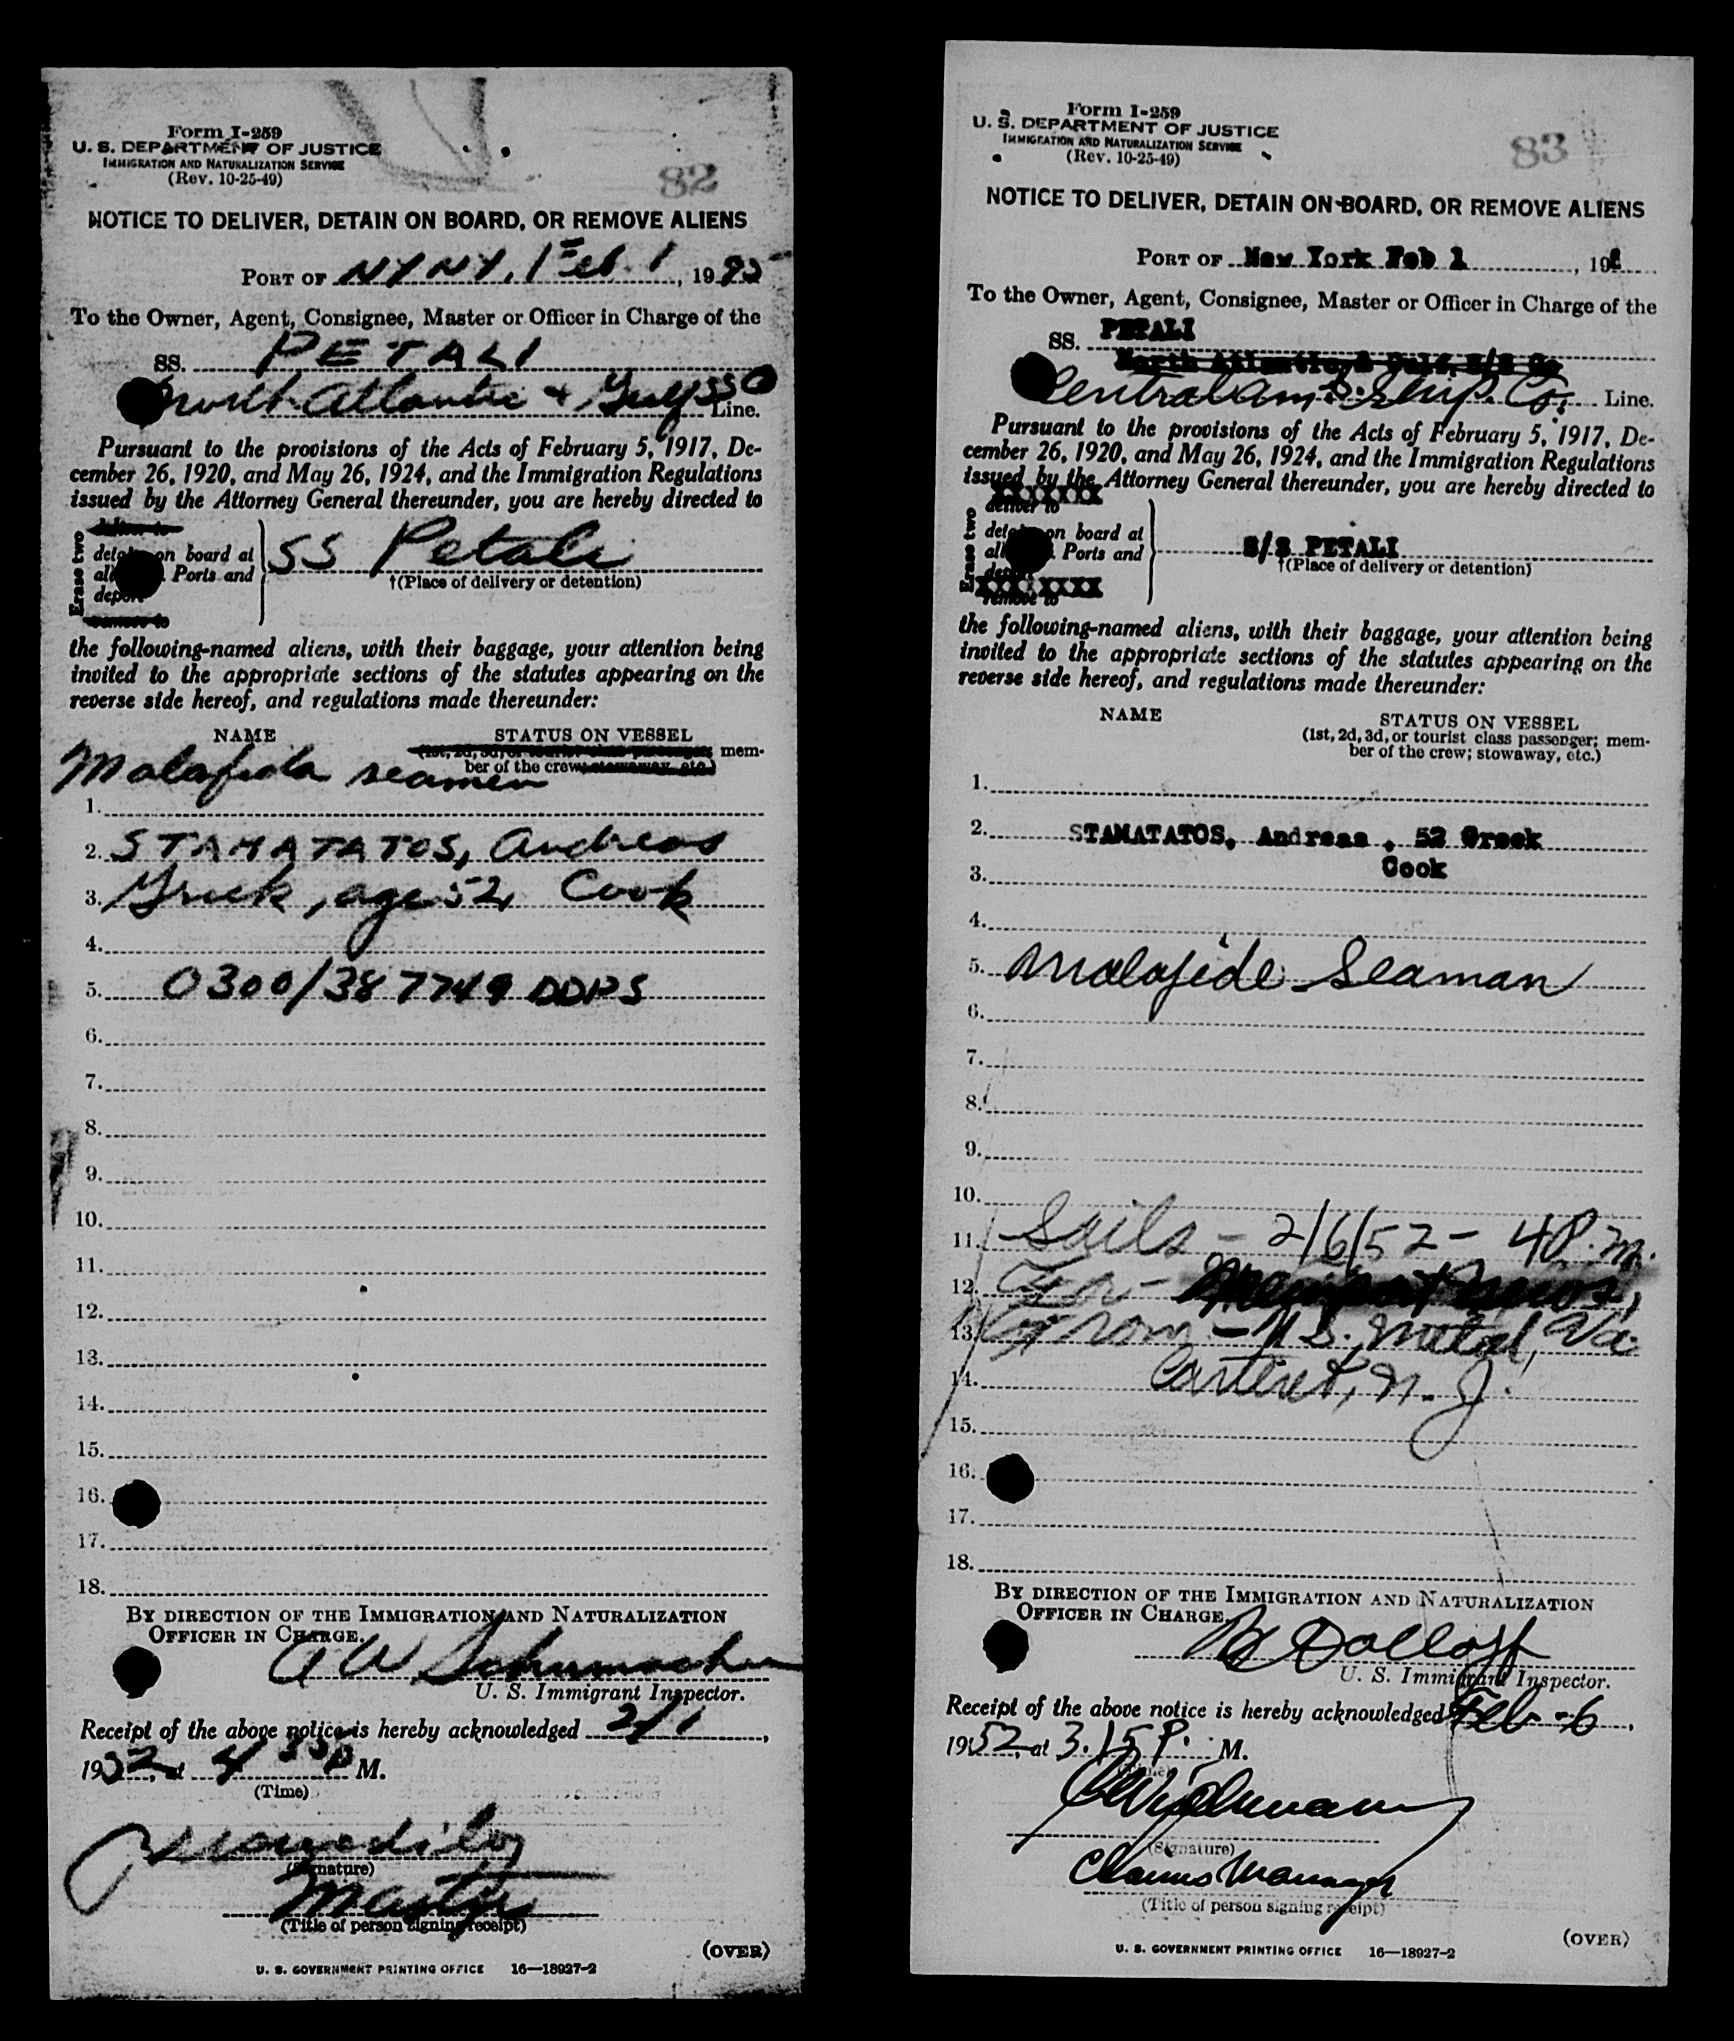 Form I-259
U. S. DEPARTMENT OF JUSTICE
IMMIGRATION AND NATURALIZATION SERVICE
(Rev. 10-25-49)
82
NOTICE TO DELIVER, DETAIN ON BOARD, OR REMOVE ALIENS
PORT OF NY NY, Feb. 1, 1952
To the Owner, Agent, Consignee, Master or Officer in Charge of the
SS. PETALI
North Atlantic & Gulf SS Co Line.
Pursuant to the provisions of the Acts of February 5, 1917, De-
cember 26, 1920, and May 26, 1924, and the Immigration Regulations
issued by the Attorney General thereunder, you are hereby directed to
Erase two
deliver to
detain on board at
all Ports and
deport
remove to
SS Petali
†(Place of delivery or detention)
the following-named aliens, with their baggage, your attention being
invited to the appropriate sections of the statutes appearing on the
reverse side hereof, and regulations made thereunder:
NAME STATUS ON VESSEL
(1st, 2d, 3d, or tourist class passenger; mem-
ber of the crew; stowaway, etc.)
Malafida seamen
1.
2. STAMATATOS, Andreas
3. Greek, age 52, Cook
4.
5. 0300/387749 DDPS
6.
7.
8.
9.
10.
11.
12.
13.
14.
15.
16.
17.
18.
BY DIRECTION OF THE IMMIGRATION AND NATURALIZATION
OFFICER IN CHARGE.
A W Schumacher
U. S. Immigrant Inspector.
Receipt of the above notice is hereby acknowledged 2/1,
1952, at 4 35 P M.
(Time)
(Signature)
Master
(Title of person signing receipt)
(OVER)
U. S. GOVERNMENT PRINTING OFFICE 16—18927-2
Form I-259
U. S. DEPARTMENT OF JUSTICE
IMMIGRATION AND NATURALIZATION SERVICE
(Rev. 10-25-49)
83
NOTICE TO DELIVER, DETAIN ON BOARD, OR REMOVE ALIENS
PORT OF New York Feb 1, 19
To the Owner, Agent, Consignee, Master or Officer in Charge of the
SS. PETALI
North Atlantic & Gulf S/S Co
Central Am. S. Ship. Co. Line.
Pursuant to the provisions of the Acts of February 5, 1917, De-
cember 26, 1920, and May 26, 1924, and the Immigration Regulations
issued by the Attorney General thereunder, you are hereby directed to
Erase two
deliver to
detain on board at
all Ports and
deport
remove to
S/S PETALI
†(Place of delivery or detention)
the following-named aliens, with their baggage, your attention being
invited to the appropriate sections of the statutes appearing on the
reverse side hereof, and regulations made thereunder:
NAME STATUS ON VESSEL
(1st, 2d, 3d, or tourist class passenger; mem-
ber of the crew; stowaway, etc.)
1.
2. STAMATATOS, Andreas , 52 Greek
Cook
3.
4.
5. Malafide Seaman
6.
7.
8.
9.
10.
11. Sails - 2/6/52 - 4 P.M.
12. For - Newport News,
13. From - U.S. Metal, Va.
14. Carteret, N. J.
15.
16.
17.
18.
BY DIRECTION OF THE IMMIGRATION AND NATURALIZATION
OFFICER IN CHARGE.
Dolloff
U. S. Immigrant Inspector.
Receipt of the above notice is hereby acknowledged Feb - 6,
1952, at 3.15 P. M.
(Signature)
Claims Manager
(Title of person signing receipt)
(OVER)
U. S. GOVERNMENT PRINTING OFFICE 16—18927-2